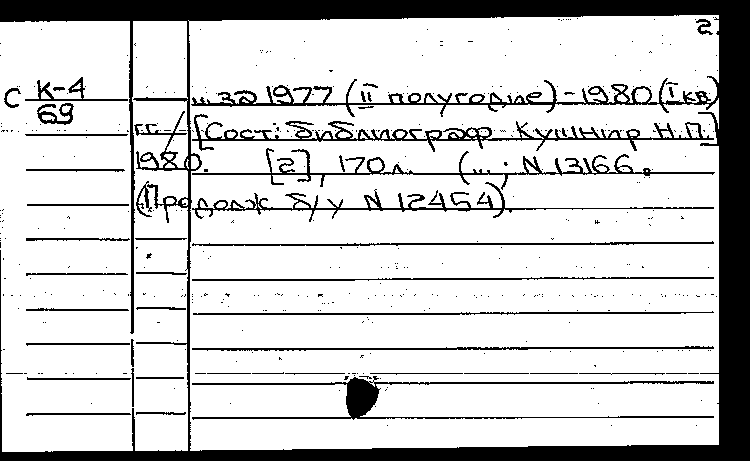 2.
С К-4 ... за 1977 (II полугодие) - 1980 (I кв)
69
гг. / [Сост: библиограф Кушнир Н.П.]
1980. [2], 170 л. (... ; N 13166.
(Продолж б/у N 12454).